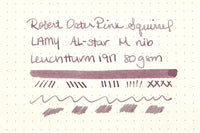 Robert Oster Pink Squirrel
LAMY Al-star M nib
Leuchtturm 1917 80gsm